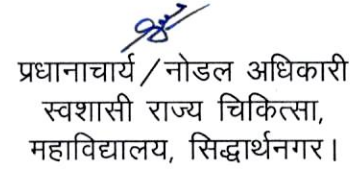 प्रधानाचार्य / नोडल अधिकारी
स्वशासी राज्य चिकित्सा,
महाविद्यालय, सिद्धार्थनगर।